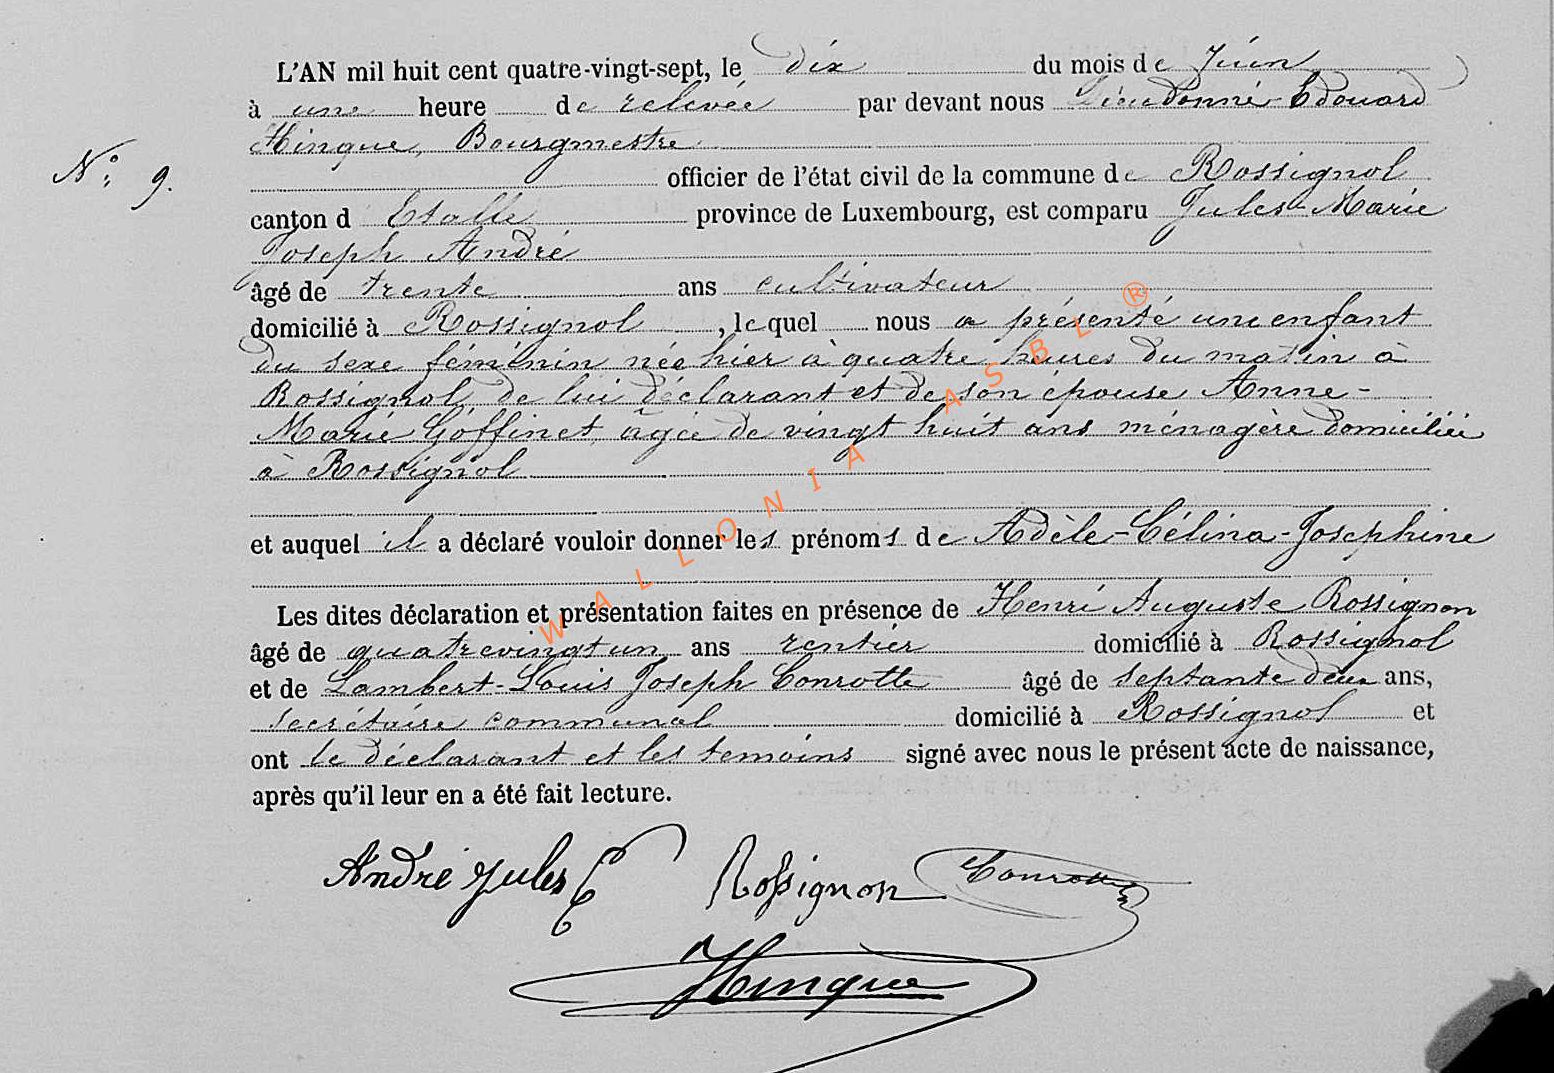 L'AN mil huit cent quatre-vingt-sept, le dix du mois de Juin
à une heure de relevée par devant nous Dieudonné Edouard
Hinque, Bourgmestre
N° 9.
officier de l'état civil de la commune de Rossignol
canton d Etalle province de Luxembourg, est comparu Jules-Marie
Joseph André
âgé de trente ans cultivateur
domicilié à Rossignol, lequel nous a présenté une enfant
du sexe féminin née hier à quatre heures du matin à
Rossignol, de lui déclarant et de son épouse Anne-
Marie Goffinet, agée de vingt huit ans ménagère domiciliée
à Rossignol
et auquel il a déclaré vouloir donner les prénoms de Adèle-Célina-Josephine
Les dites déclaration et présentation faites en présence de Henri Auguste Rossignon
âgé de quatrevingt un ans rentier domicilié à Rossignol
et de Lambert-Louis Joseph Conrotte âgé de septante deux ans,
secrétaire communal domicilié à Rossignol et
ont le déclarant et les temoins signé avec nous le présent acte de naissance,
après qu'il leur en a été fait lecture.
André Jules Rossignon Conrotte
Hinque
WALLONIA ASBL ®